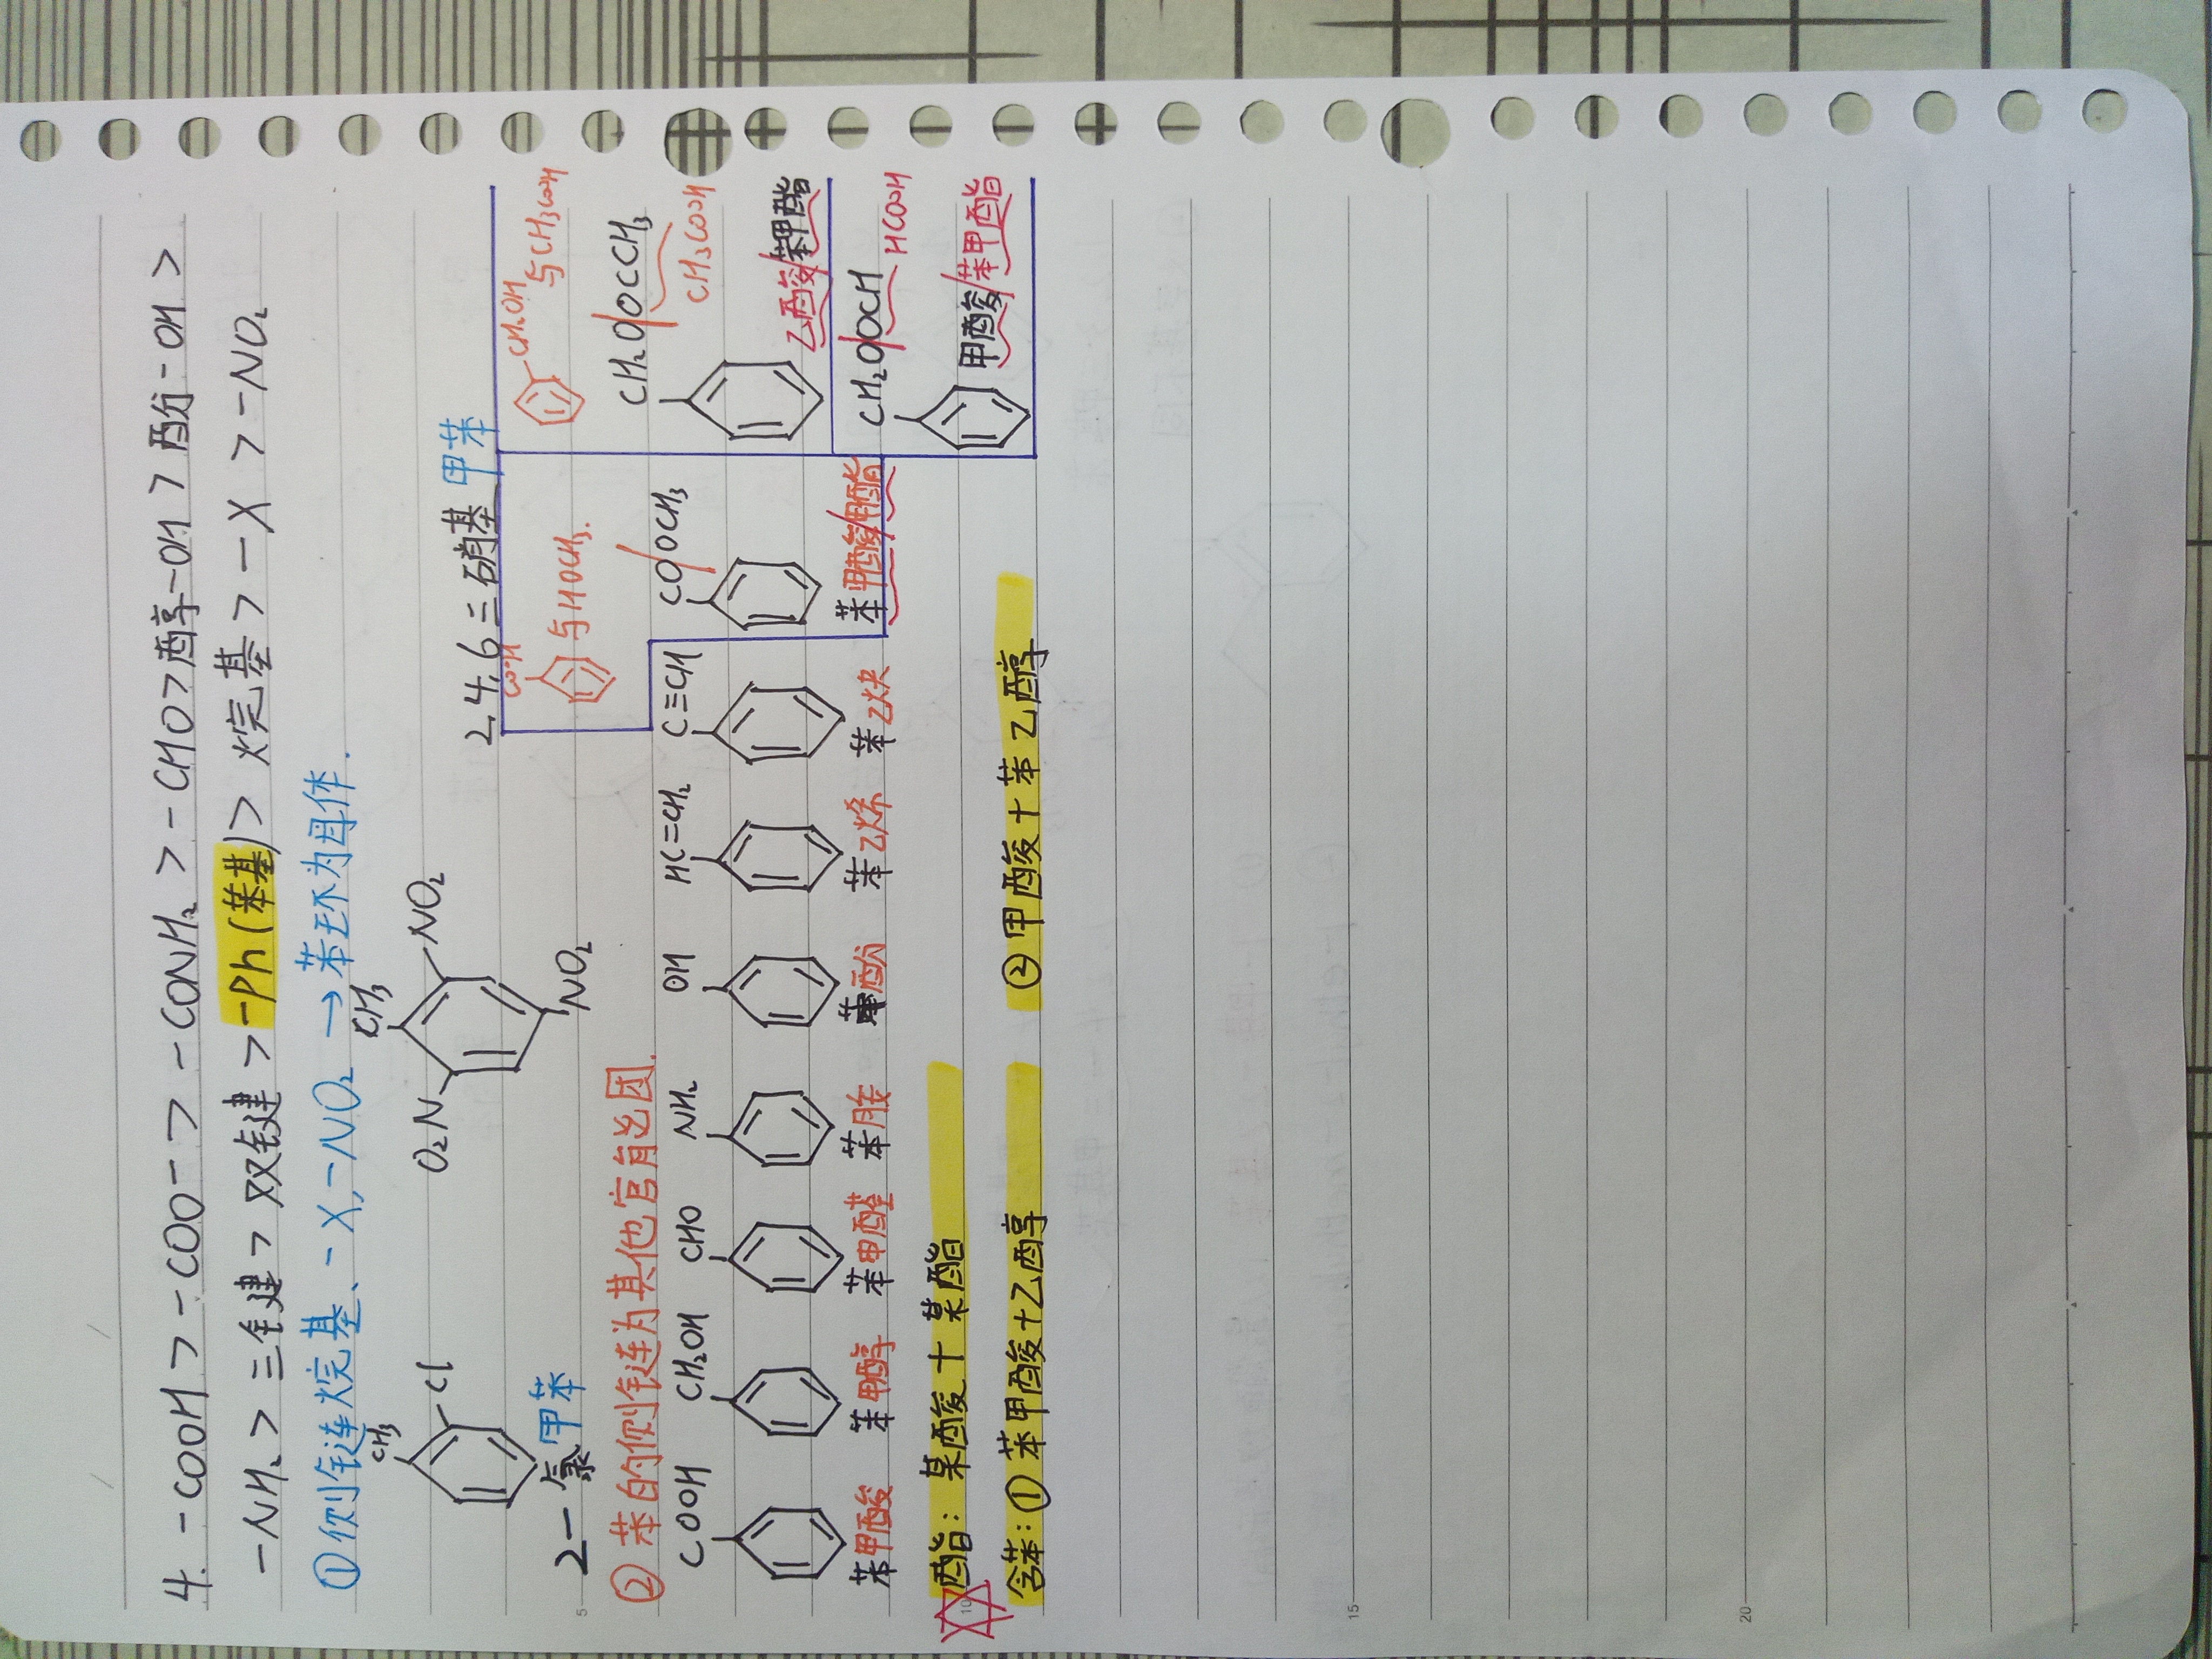 4. -COOH > -COO- > -CONH₂ > -CHO > 醇-OH > 酚-OH >
-NH₂ > 三键 > 双键 > -Ph(苯基) > 烷基 > -X > -NO₂
①侧链连烷基、-X,-NO₂ → 苯环为母体.
CH₃
Cl
2-氯甲苯
CH₃
O₂N
NO₂
NO₂
2,4,6三硝基甲苯
②苯的侧链连为其他官能团.
COOH
苯甲酸
CH₂OH
苯甲醇
CHO
苯甲醛
NH₂
苯胺
OH
苯酚
HC=CH₂
苯乙烯
C≡CH
苯乙炔
COOH
与HOCH₃.
CO/OCH₃
苯甲酸/甲酯
CH₂OH
与CH₃COOH
CH₂O/OCCH₃
CH₃COOH
乙酸/苯甲酯
CH₂O/OCH
HCOOH
甲酸/苯甲酯
酯: 某酸+某酯
含苯:①苯甲酸+乙醇 ②甲酸+苯乙醇
5
10
15
20